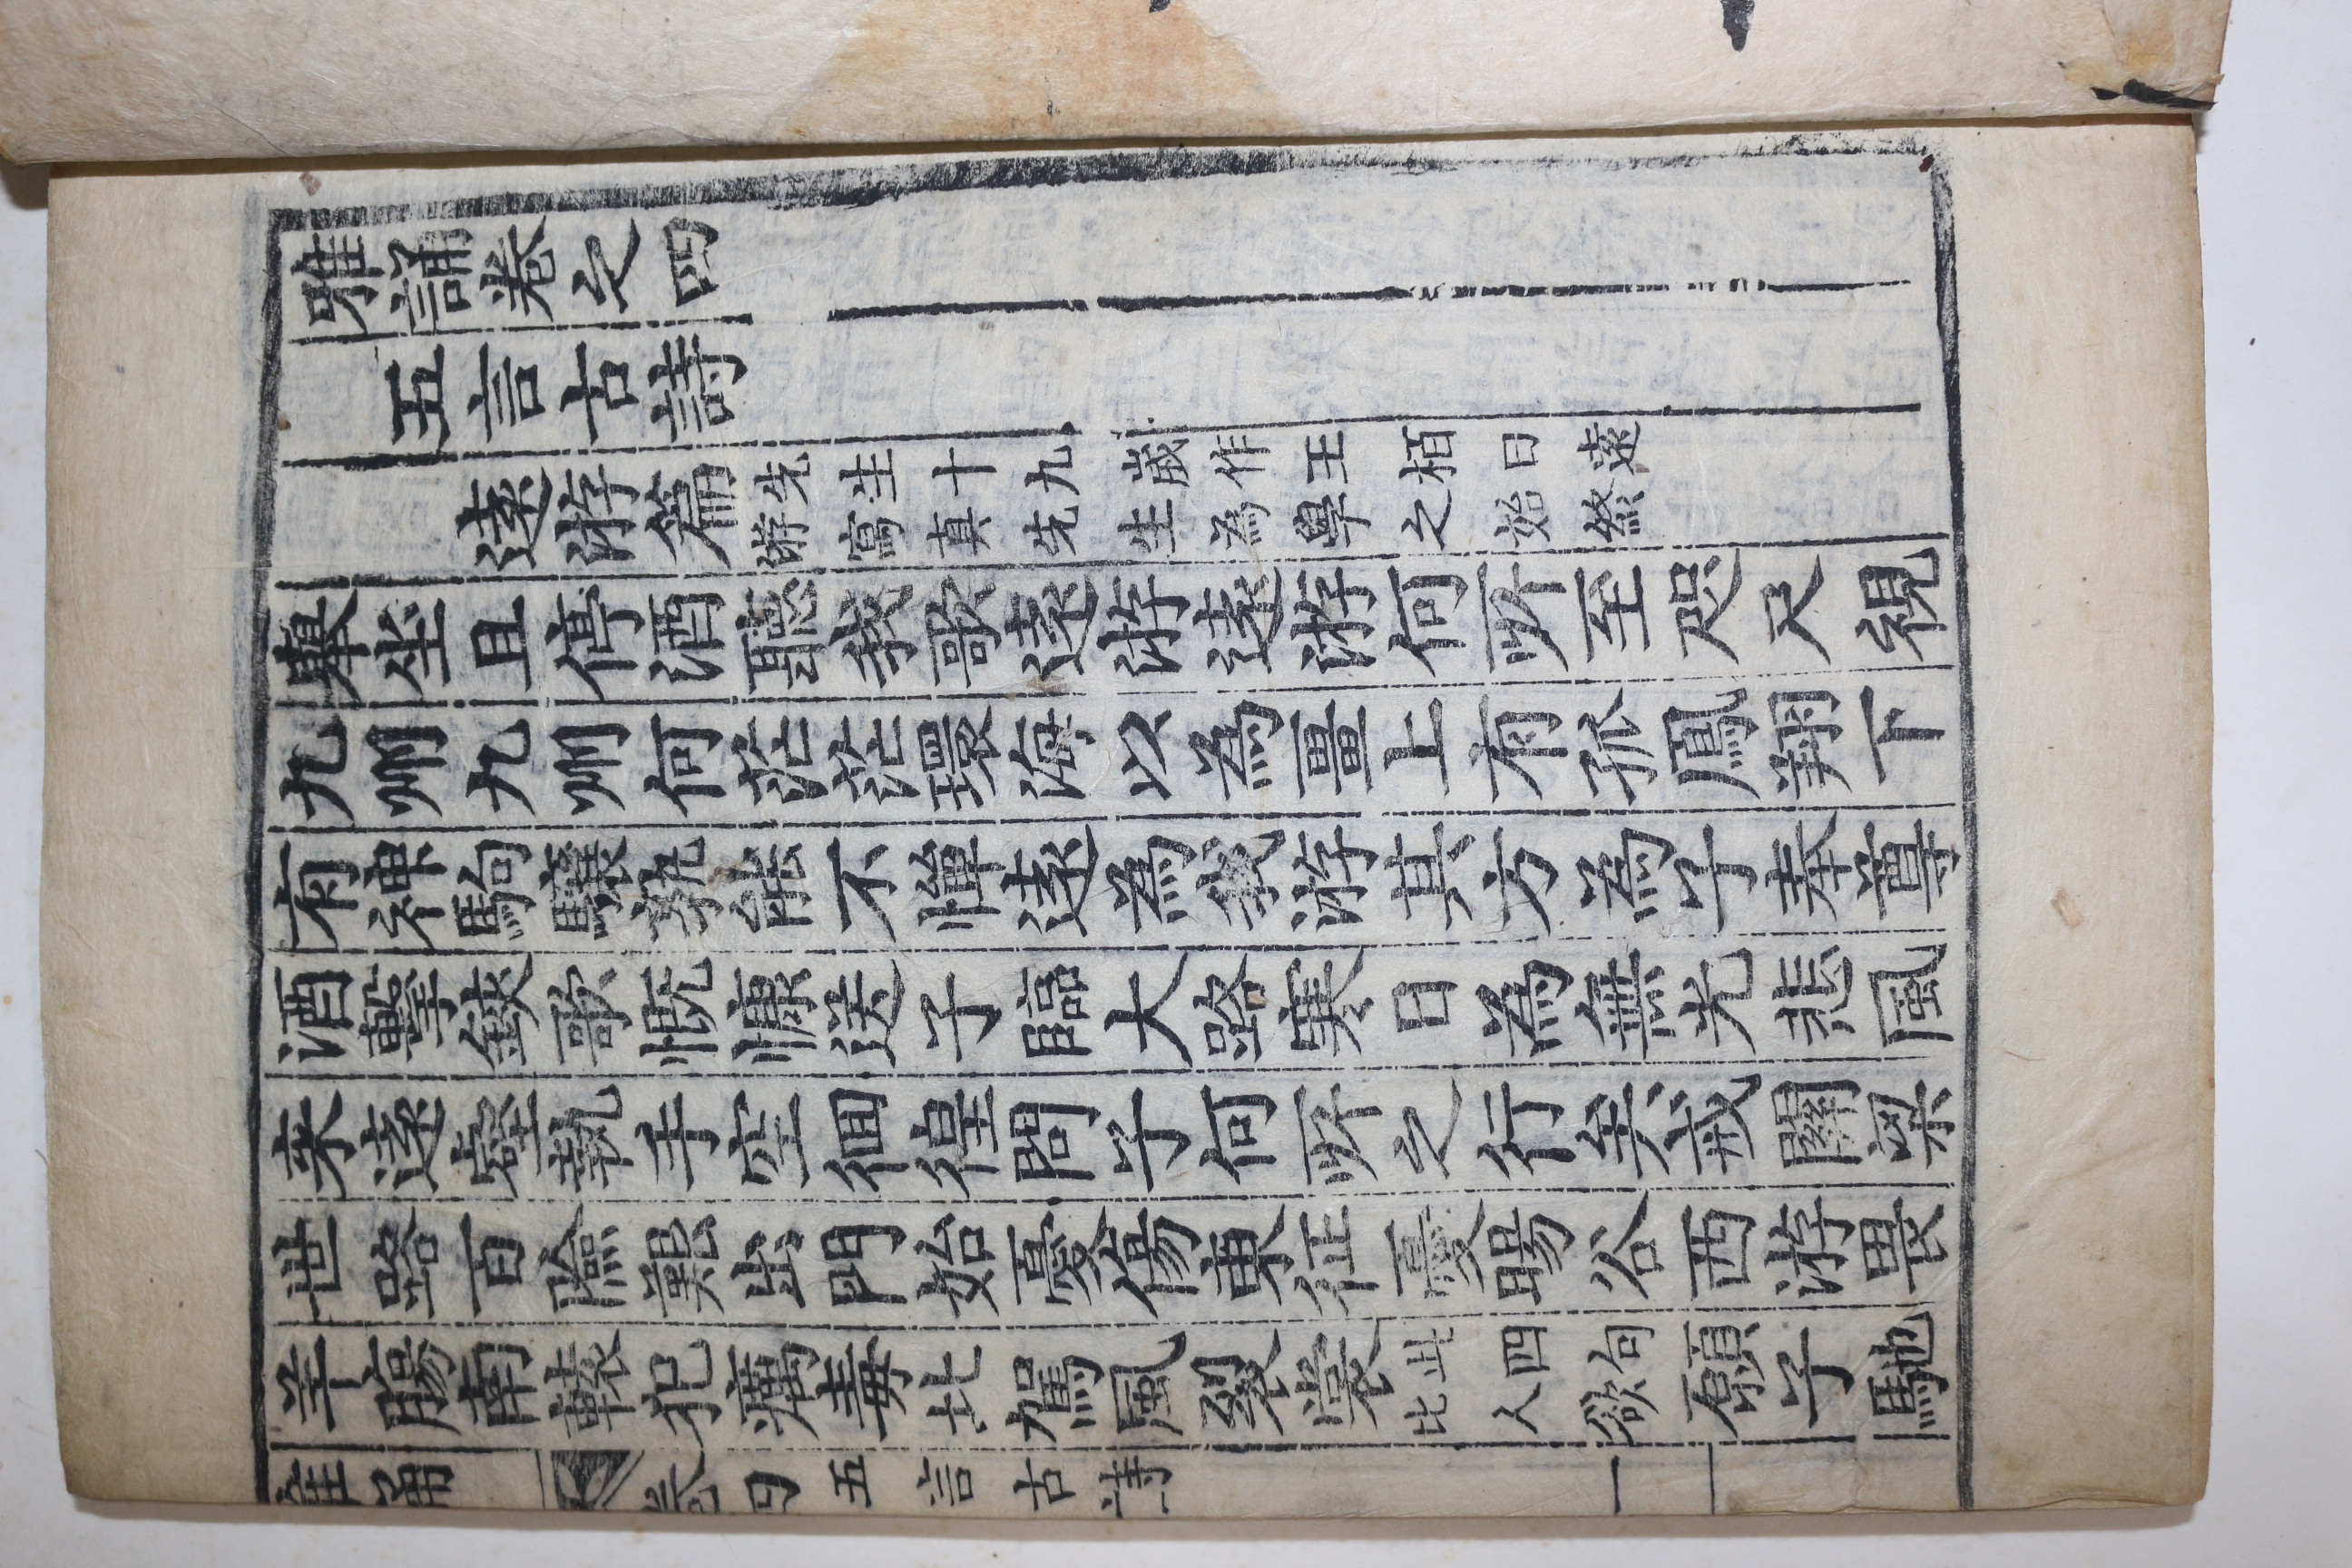 雅誦卷之四
五言古詩
遠游篇 先生十九歲作王栢曰遠
游寫真先生為學之始終
舉坐且停酒聽我歌遠游遠游何所至咫尺視
九州九州何茫茫環海以為疆上有孤鳳翔下
有神駒驤孰能不憚遠為我游其方為子奉尊
酒擊鋏歌慨慷送子臨大路寒日為無光悲風
來遠壑執手空徊徨問子何所之行矣戒關梁
世路百險艱出門始憂傷東征憂暘谷西游畏
羊腸南轅犯癘毒北駕風裂裳 此四句
比人欲 願子馳
雅誦 卷四 五言古詩 一